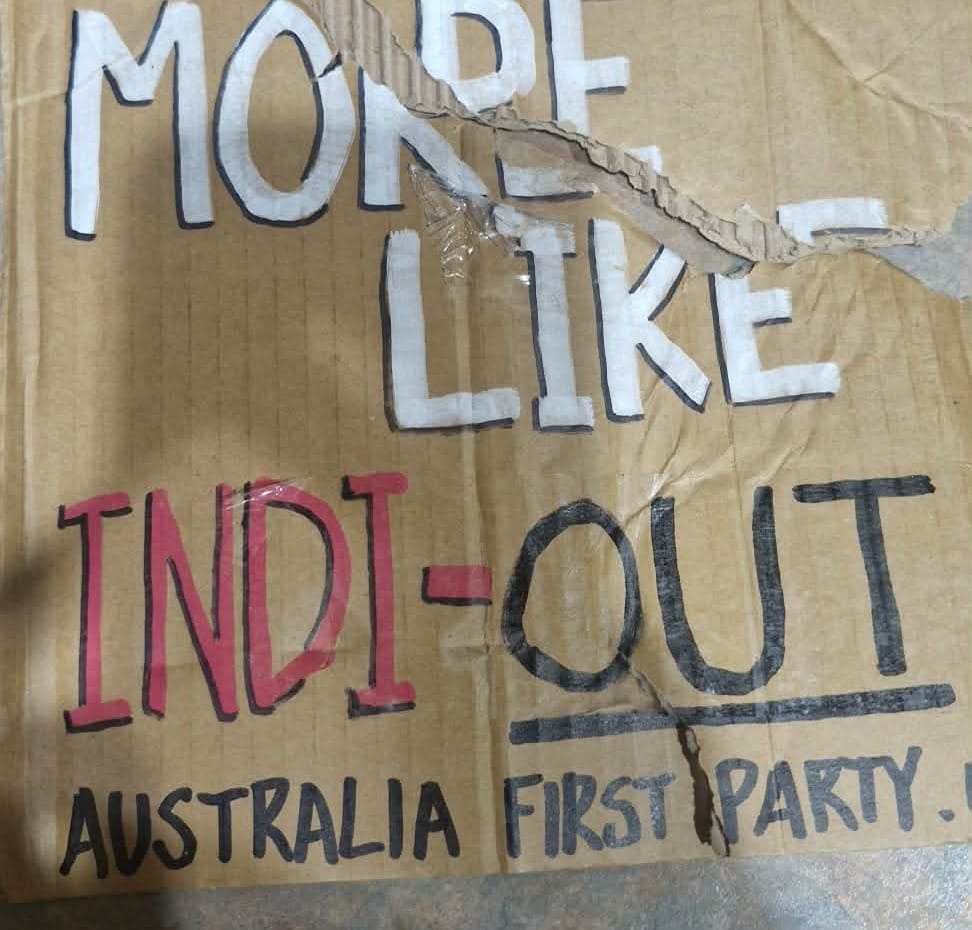 MORE
LIKE
INDI-OUT
AUSTRALIA FIRST PARTY.